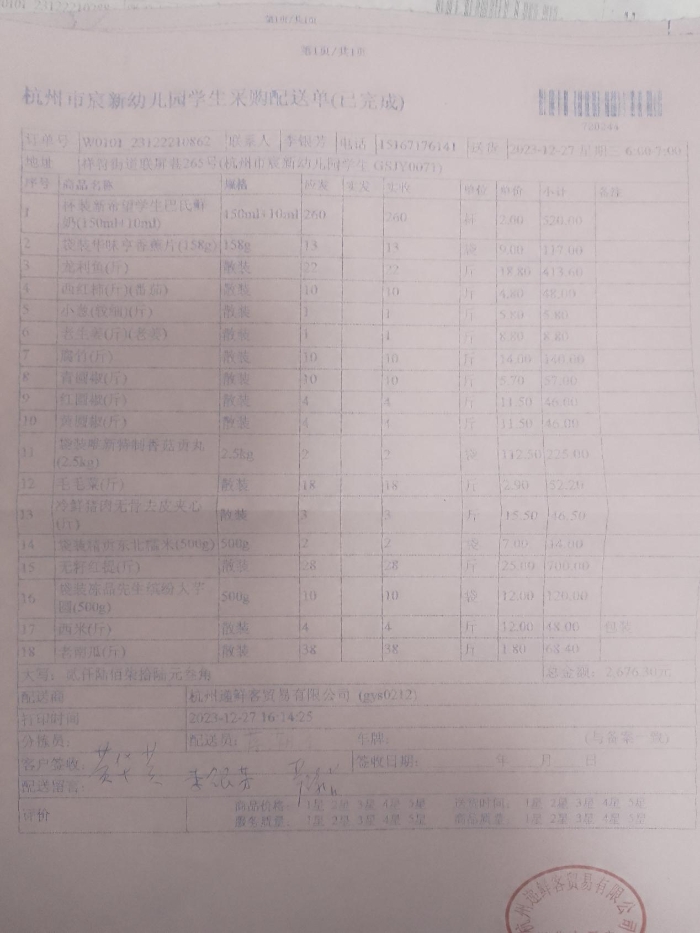 第1页/共1页
第1页/共1页
杭州市宸新幼儿园学生采购配送单(已完成)
订单号 W0101_23122210862 联系人 李银芳 电话 15167176141 送货 2023-12-27 星期三 6:00-7:00
地址 祥符街道 265号(杭州市宸新幼儿园学生 GSJY0071)
序号 商品名称 规格 应发 实发 实收 单位 单价 小计 备注
1 杯装新希望学生巴氏鲜奶(150ml+10ml) 150ml+10ml 260 260 杯 2.00 520.00
2 袋装华味亨香蕉片(158g) 158g 13 13 袋 9.00 117.00
3 龙利鱼(斤) 散装 22 22 斤 18.80 413.60
4 西红柿(斤)(番茄) 散装 10 10 斤 4.80 48.00
5 小葱(较细)(斤) 散装 1 1 斤 5.80 5.80
6 去生姜(斤)(老姜) 散装 1 1 斤 8.80 8.80
7 腐竹(斤) 散装 10 10 斤 14.00 140.00
8 青圆椒(斤) 散装 10 10 斤 5.70 57.00
9 红圆椒(斤) 散装 4 4 斤 11.50 46.00
10 黄圆椒(斤) 散装 4 4 斤 11.50 46.00
11 袋装 特制香菇贡丸(2.5kg) 2.5kg 2 2 袋 112.50 225.00
12 毛毛菜(斤) 散装 18 18 斤 2.90 52.20
13 冷鲜猪肉无骨去皮夹心(斤) 散装 3 3 斤 15.50 46.50
14 袋装 东北糯米(500g) 500g 2 2 袋 7.00 14.00
15 无籽红提(斤) 散装 28 28 斤 25.00 700.00
16 袋装冻品先生缤纷大芋圆(500g) 500g 10 10 袋 12.00 120.00
17 西米(斤) 散装 4 4 斤 12.00 48.00 包装
18 老南瓜(斤) 散装 38 38 斤 1.80 68.40
大写: 贰仟陆佰柒拾陆元叁角 总金额: 2,676.30元
配送商 杭州 鲜客贸易有限公司 (gys0212)
打印时间 2023-12-27 16:14:25
分拣员: 配送员: 车牌: (与备案一致)
客户签收: 李银芳 签收日期: 年 月 日
配送留言:
评价 商品价格: 1星 2星 3星 4星 5星 送货时间: 1星 2星 3星 4星 5星
服务质量: 1星 2星 3星 4星 5星 商品质量: 1星 2星 3星 4星 5星
鲜客贸易有限公司